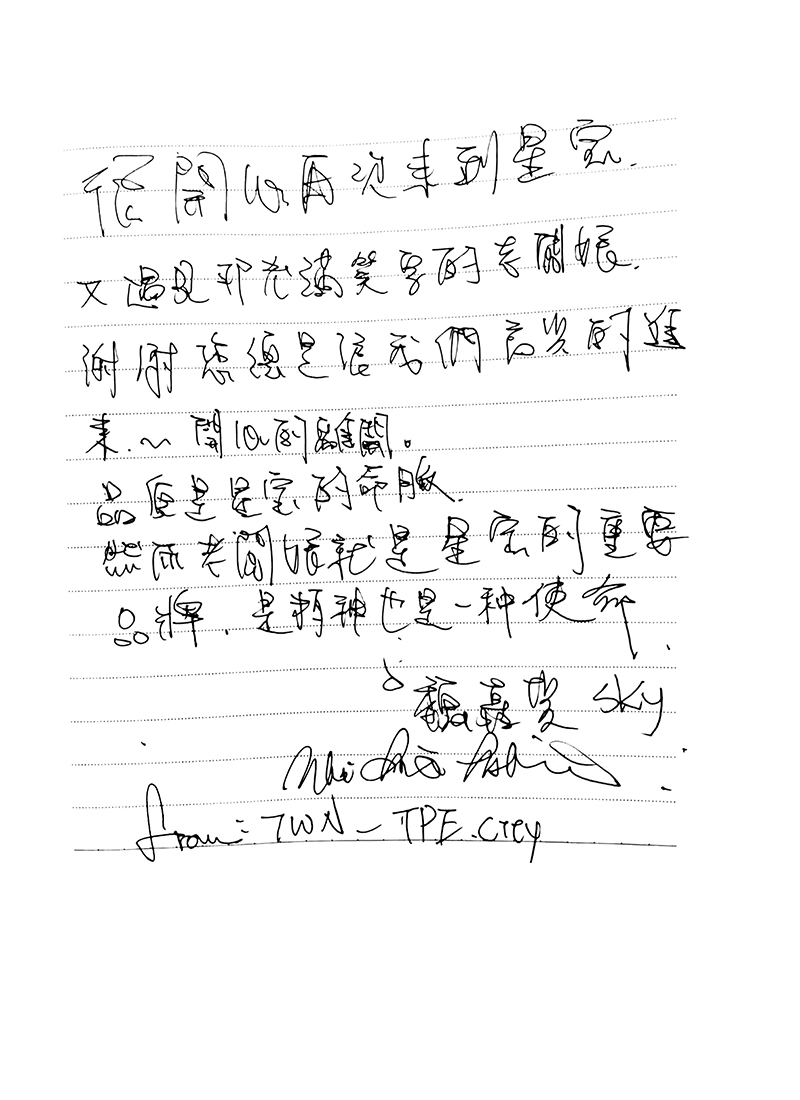 很開心再次來到星宝.
又遇見那充滿笑容的老闆娘.
謝謝您總是讓我們高興的進
來.~開心的離開。
品質是星宝的命脈.
然而老闆娘就是星宝的重要
品牌.是精神也是一种使命.
魏嘉 SKY
from: TWN - TPE.City